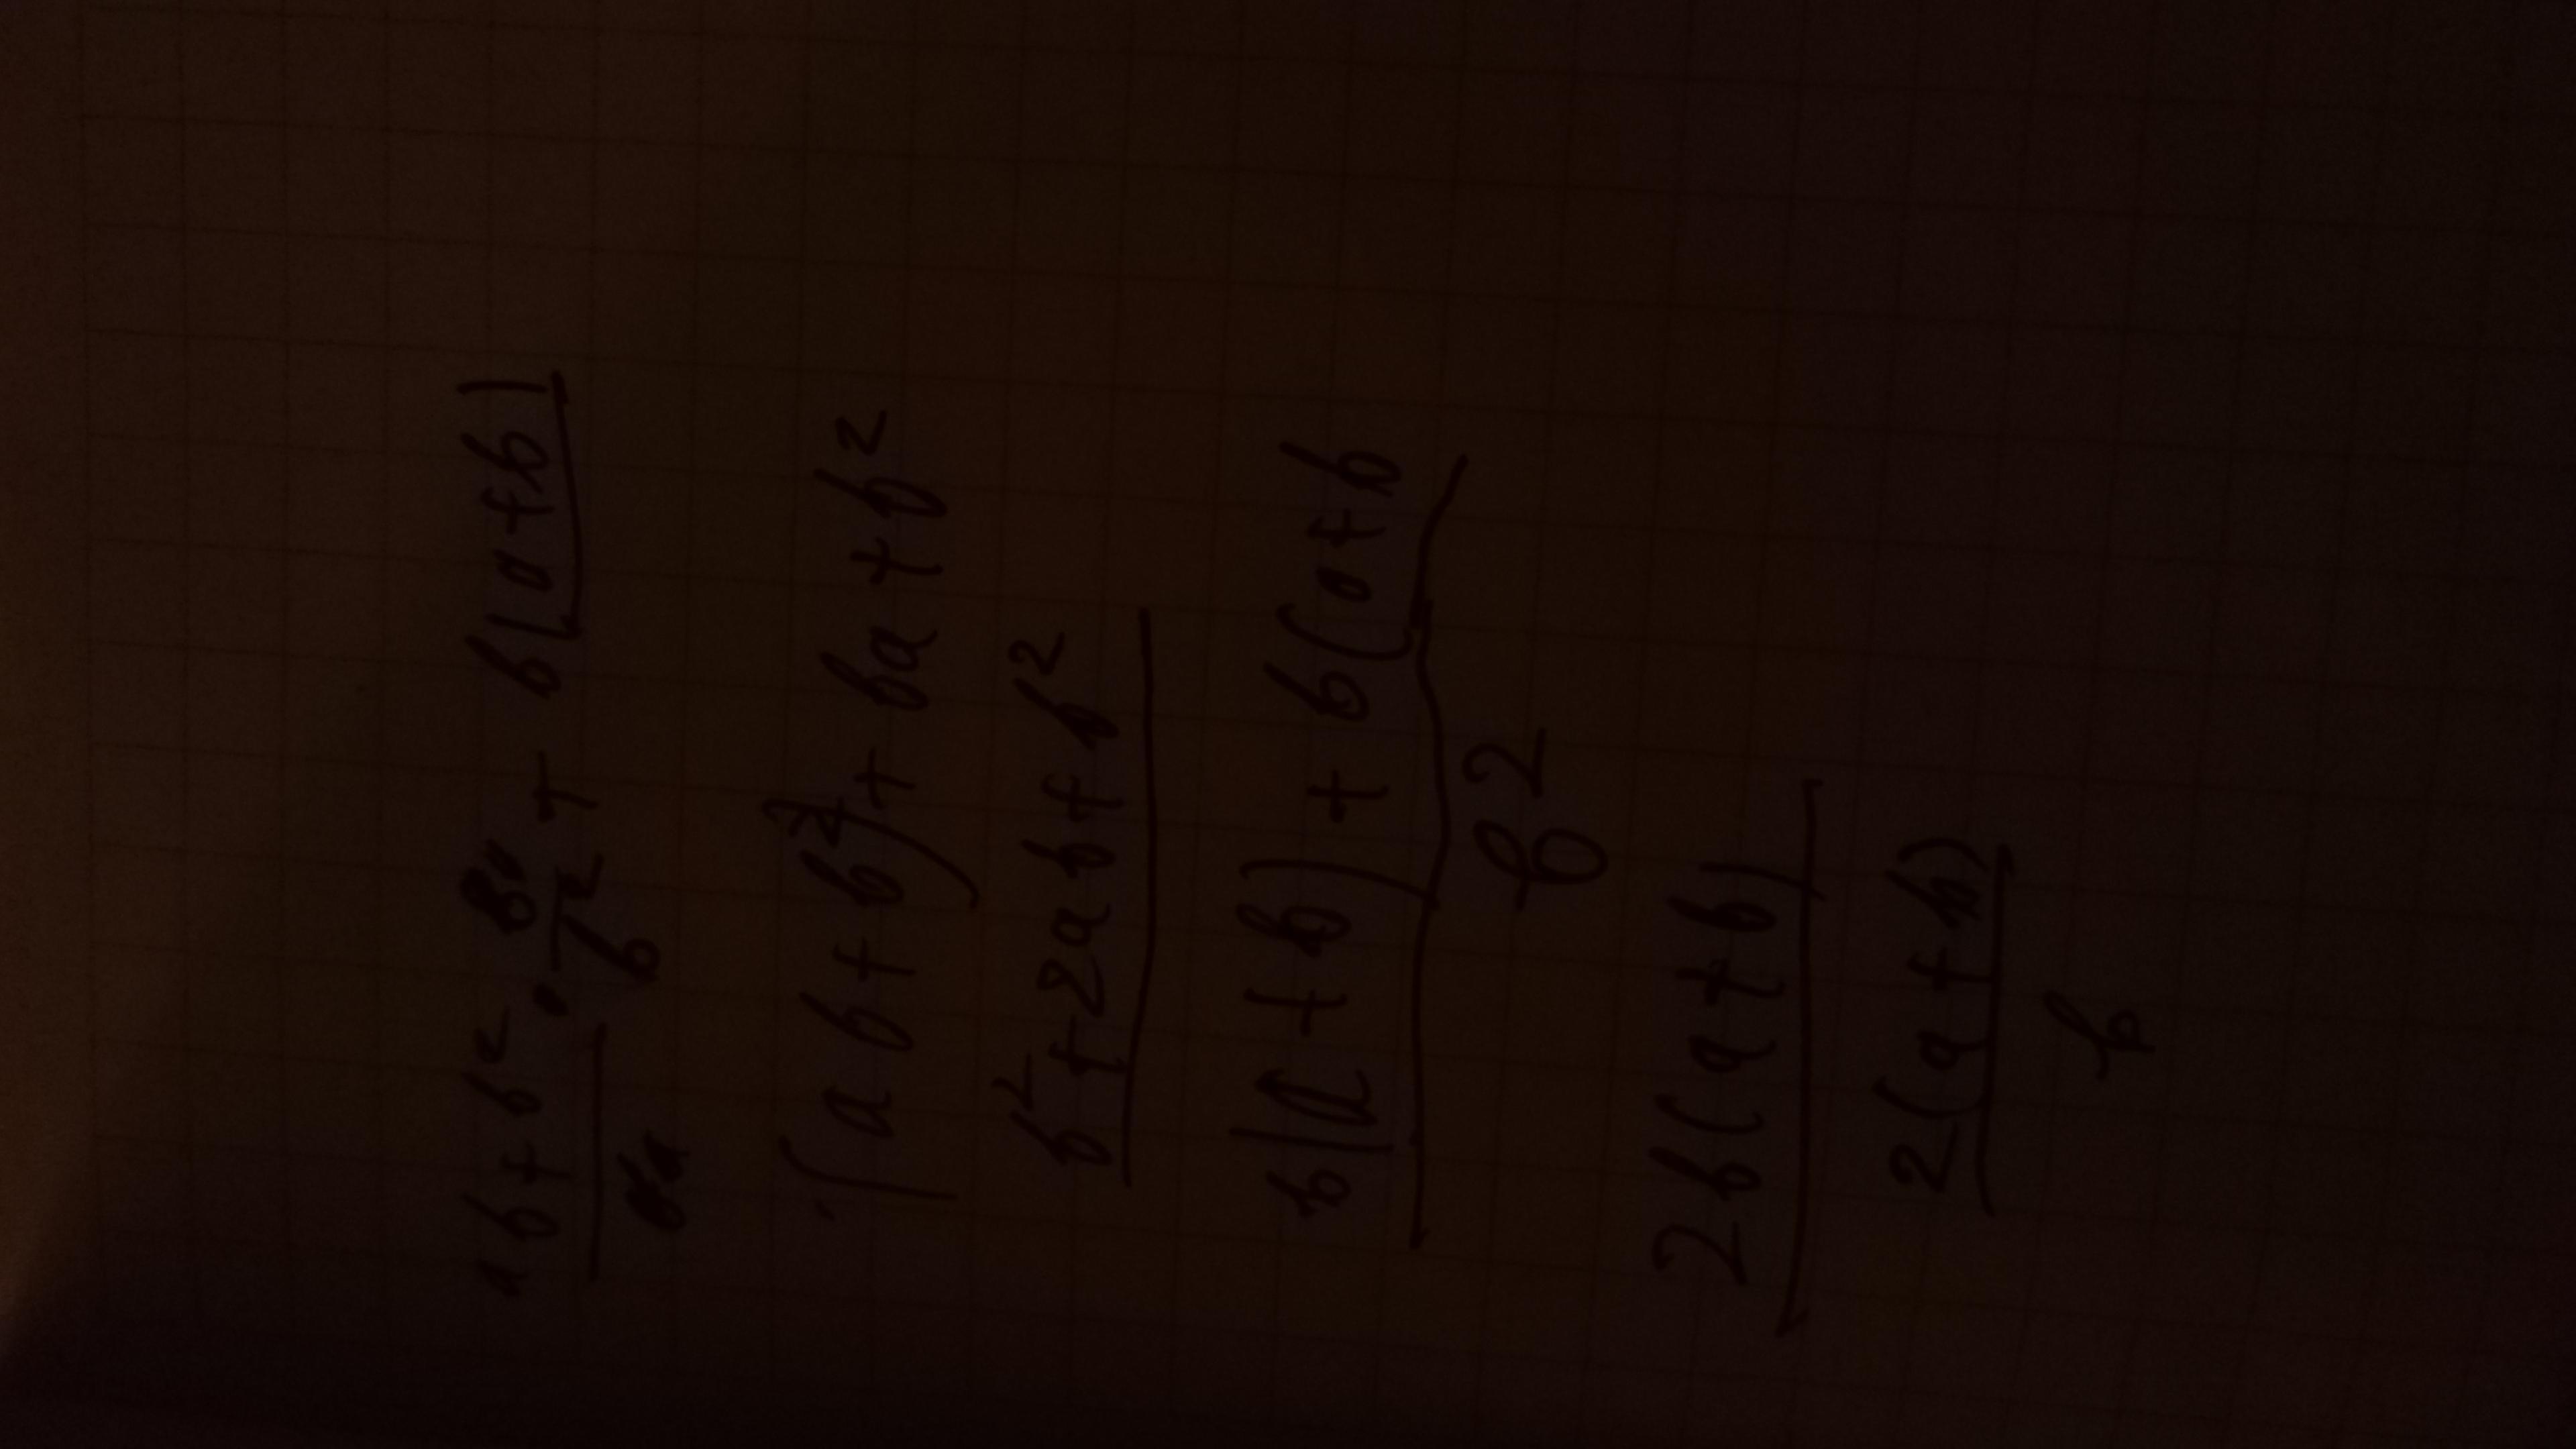 ab + b² · + b(a+b)
b²
(ab + b²) + ba + b²
b² + 2ab + b²
b(a + b) + b(a+b
b²
2b(a+b)
2(a+b)
b